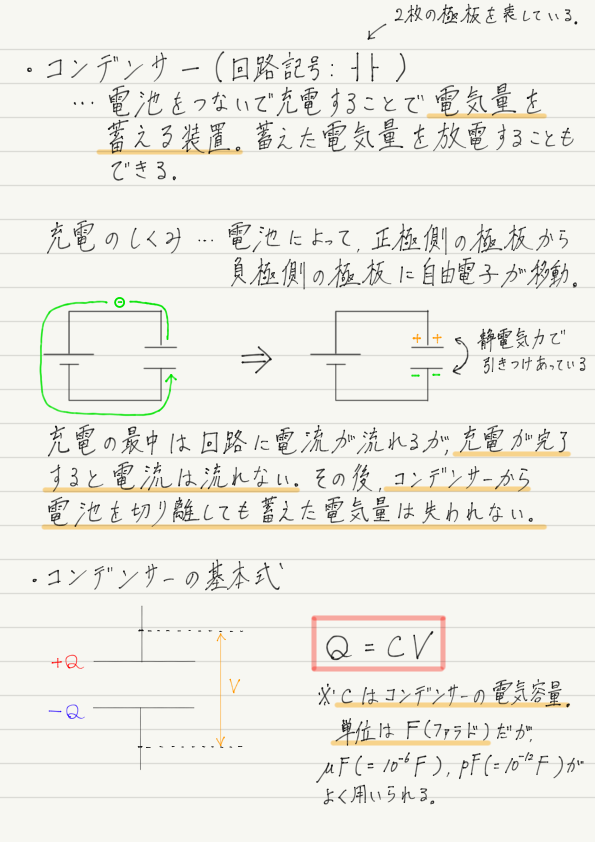 2枚の極板を表している。
・コンデンサー(回路記号: ⊣⊢)
… 電池をつないで充電することで電気量を
蓄える装置。蓄えた電気量を放電することも
できる。
充電のしくみ … 電池によって、正極側の極板から
負極側の極板に自由電子が移動。
⊖
⇒
+ +
- -
静電気力で
引きつけあっている
充電の最中は回路に電流が流れるが、充電が完了
すると電流は流れない。その後、コンデンサーから
電池を切り離しても蓄えた電気量は失われない。
・コンデンサーの基本式
+Q
-Q
V
Q = CV
※ Cはコンデンサーの電気容量。
単位はF(ファラド)だが、
μF(=10⁻⁶F), pF(=10⁻¹²F)が
よく用いられる。